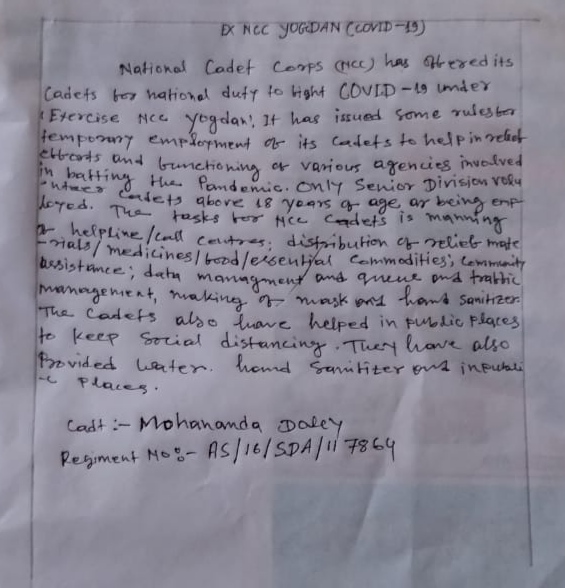 EX NCC YOGDAN (COVID-19)
National Cadet Corps (NCC) has offered its
Cadets for national duty to fight COVID-19 under
'Exercise NCC Yogdan'. It has issued some rules for
temporary employment of its Cadets to help in relief
efforts and functioning of various agencies involved
in batting the Pandemic. Only Senior Division volu
-nteer Cadets above 18 years of age, ar being emp
loyed. The tasks for NCC Cadets is manning
helpline/call centres; distribution of relief mate
-rials/medicines/food/essential Commodities; Community
assistance; data managment and queue and traffic
management, making of mask and hand Sanitizer
The Cadets also have helped in public places
to keep Social distancing. They have also
Provided water. hand Sanitizer and in publi
-c places.
Cadt :- Mohananda Doley
Regiment No:- AS/16/SDA/117864